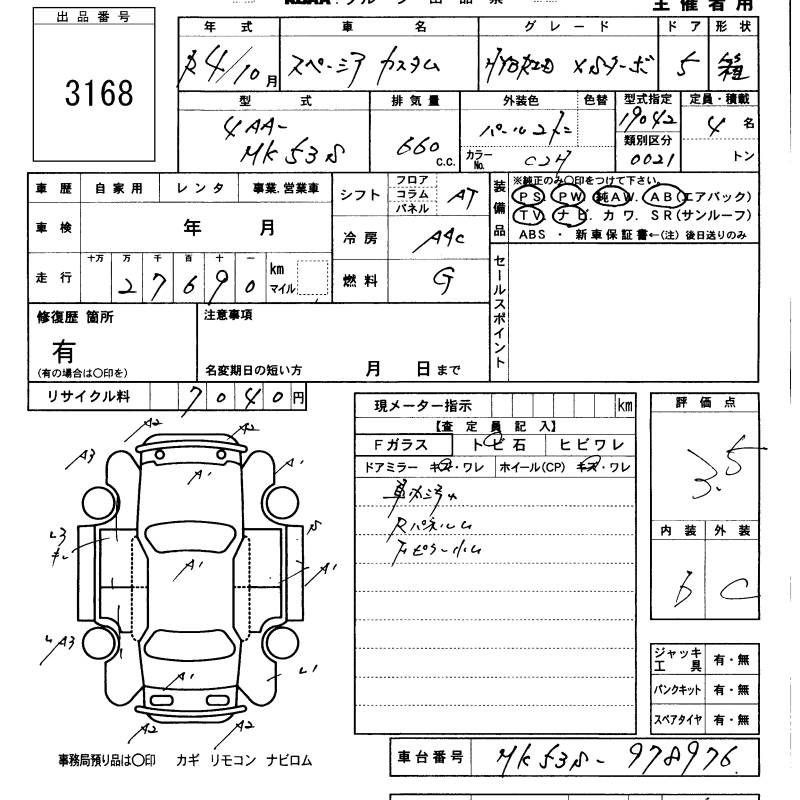 出品番号
3168
主催者用
年式 車名 グレード ドア 形状
R4/10月 スペーシア カスタム HYBRID XSターボ 5 箱
型式 排気量 外装色 色替 型式指定 定員・積載
4AA-MK53S 660c.c. 19042 4名
類別区分
カラーNo. 0021 トン
車歴 自家用 レンタ 事業.営業車
シフト フロア コラム パネル AT
装備品 ※純正のみ○印をつけて下さい。
PS PW 純AW. AB(エアバック)
TV ナビ. カワ. SR(サンルーフ)
ABS ・ 新車保証書←(注) 後日送りのみ
車検 年 月
冷房 AAC
走行 十万 万 千 百 十 一
27690 km マイル
燃料 G
セールスポイント
修復歴 箇所
有
(有の場合は○印を)
注意事項
名変期日の短い方 月 日まで
リサイクル料 7040円
現メーター指示 km
評価点
3.5
【査定員記入】
Fガラス トビ石 ヒビワレ
ドアミラー キズ・ワレ ホイール(CP) キズ・ワレ
車内汚れ
内装 外装
b C
A2 A2
A3 A1 A1
S
A1 A1
A3
A1 L1
A2 A2
ジャッキ 工具 有・無
パンクキット 有・無
スペアタイヤ 有・無
事務局預り品は○印 カギ リモコン ナビロム
車台番号 MK53S-978976